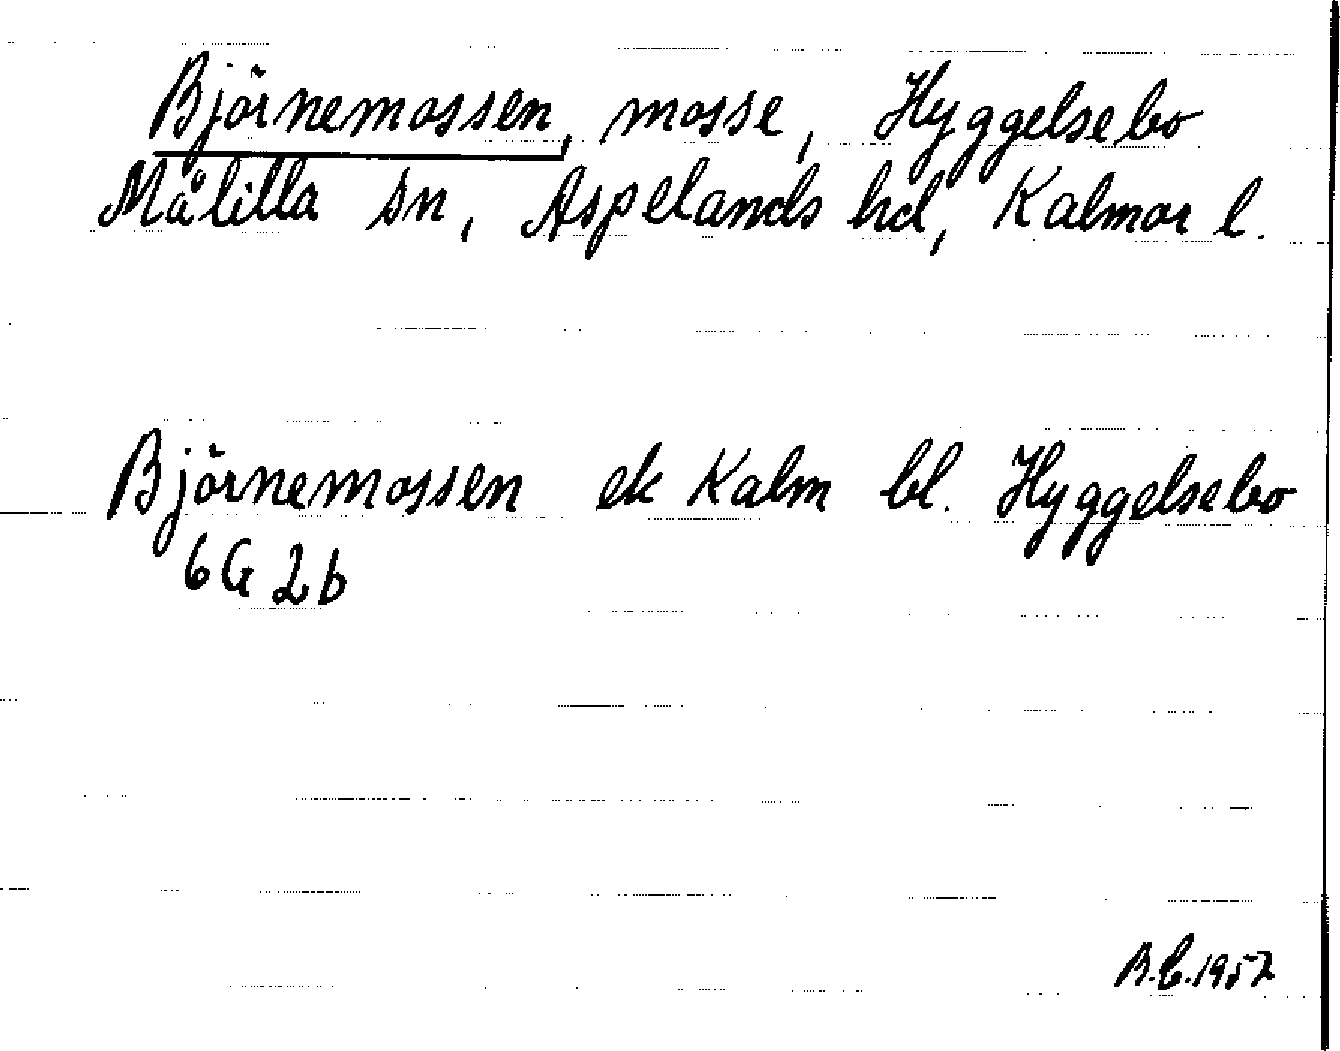 Björnemossen, mosse, Hyggelsebo
Målilla sn, Aspelands hd, Kalmar l.
Björnemossen ek Kalm bl. Hyggelsebo
6G 2b
B.C.1952